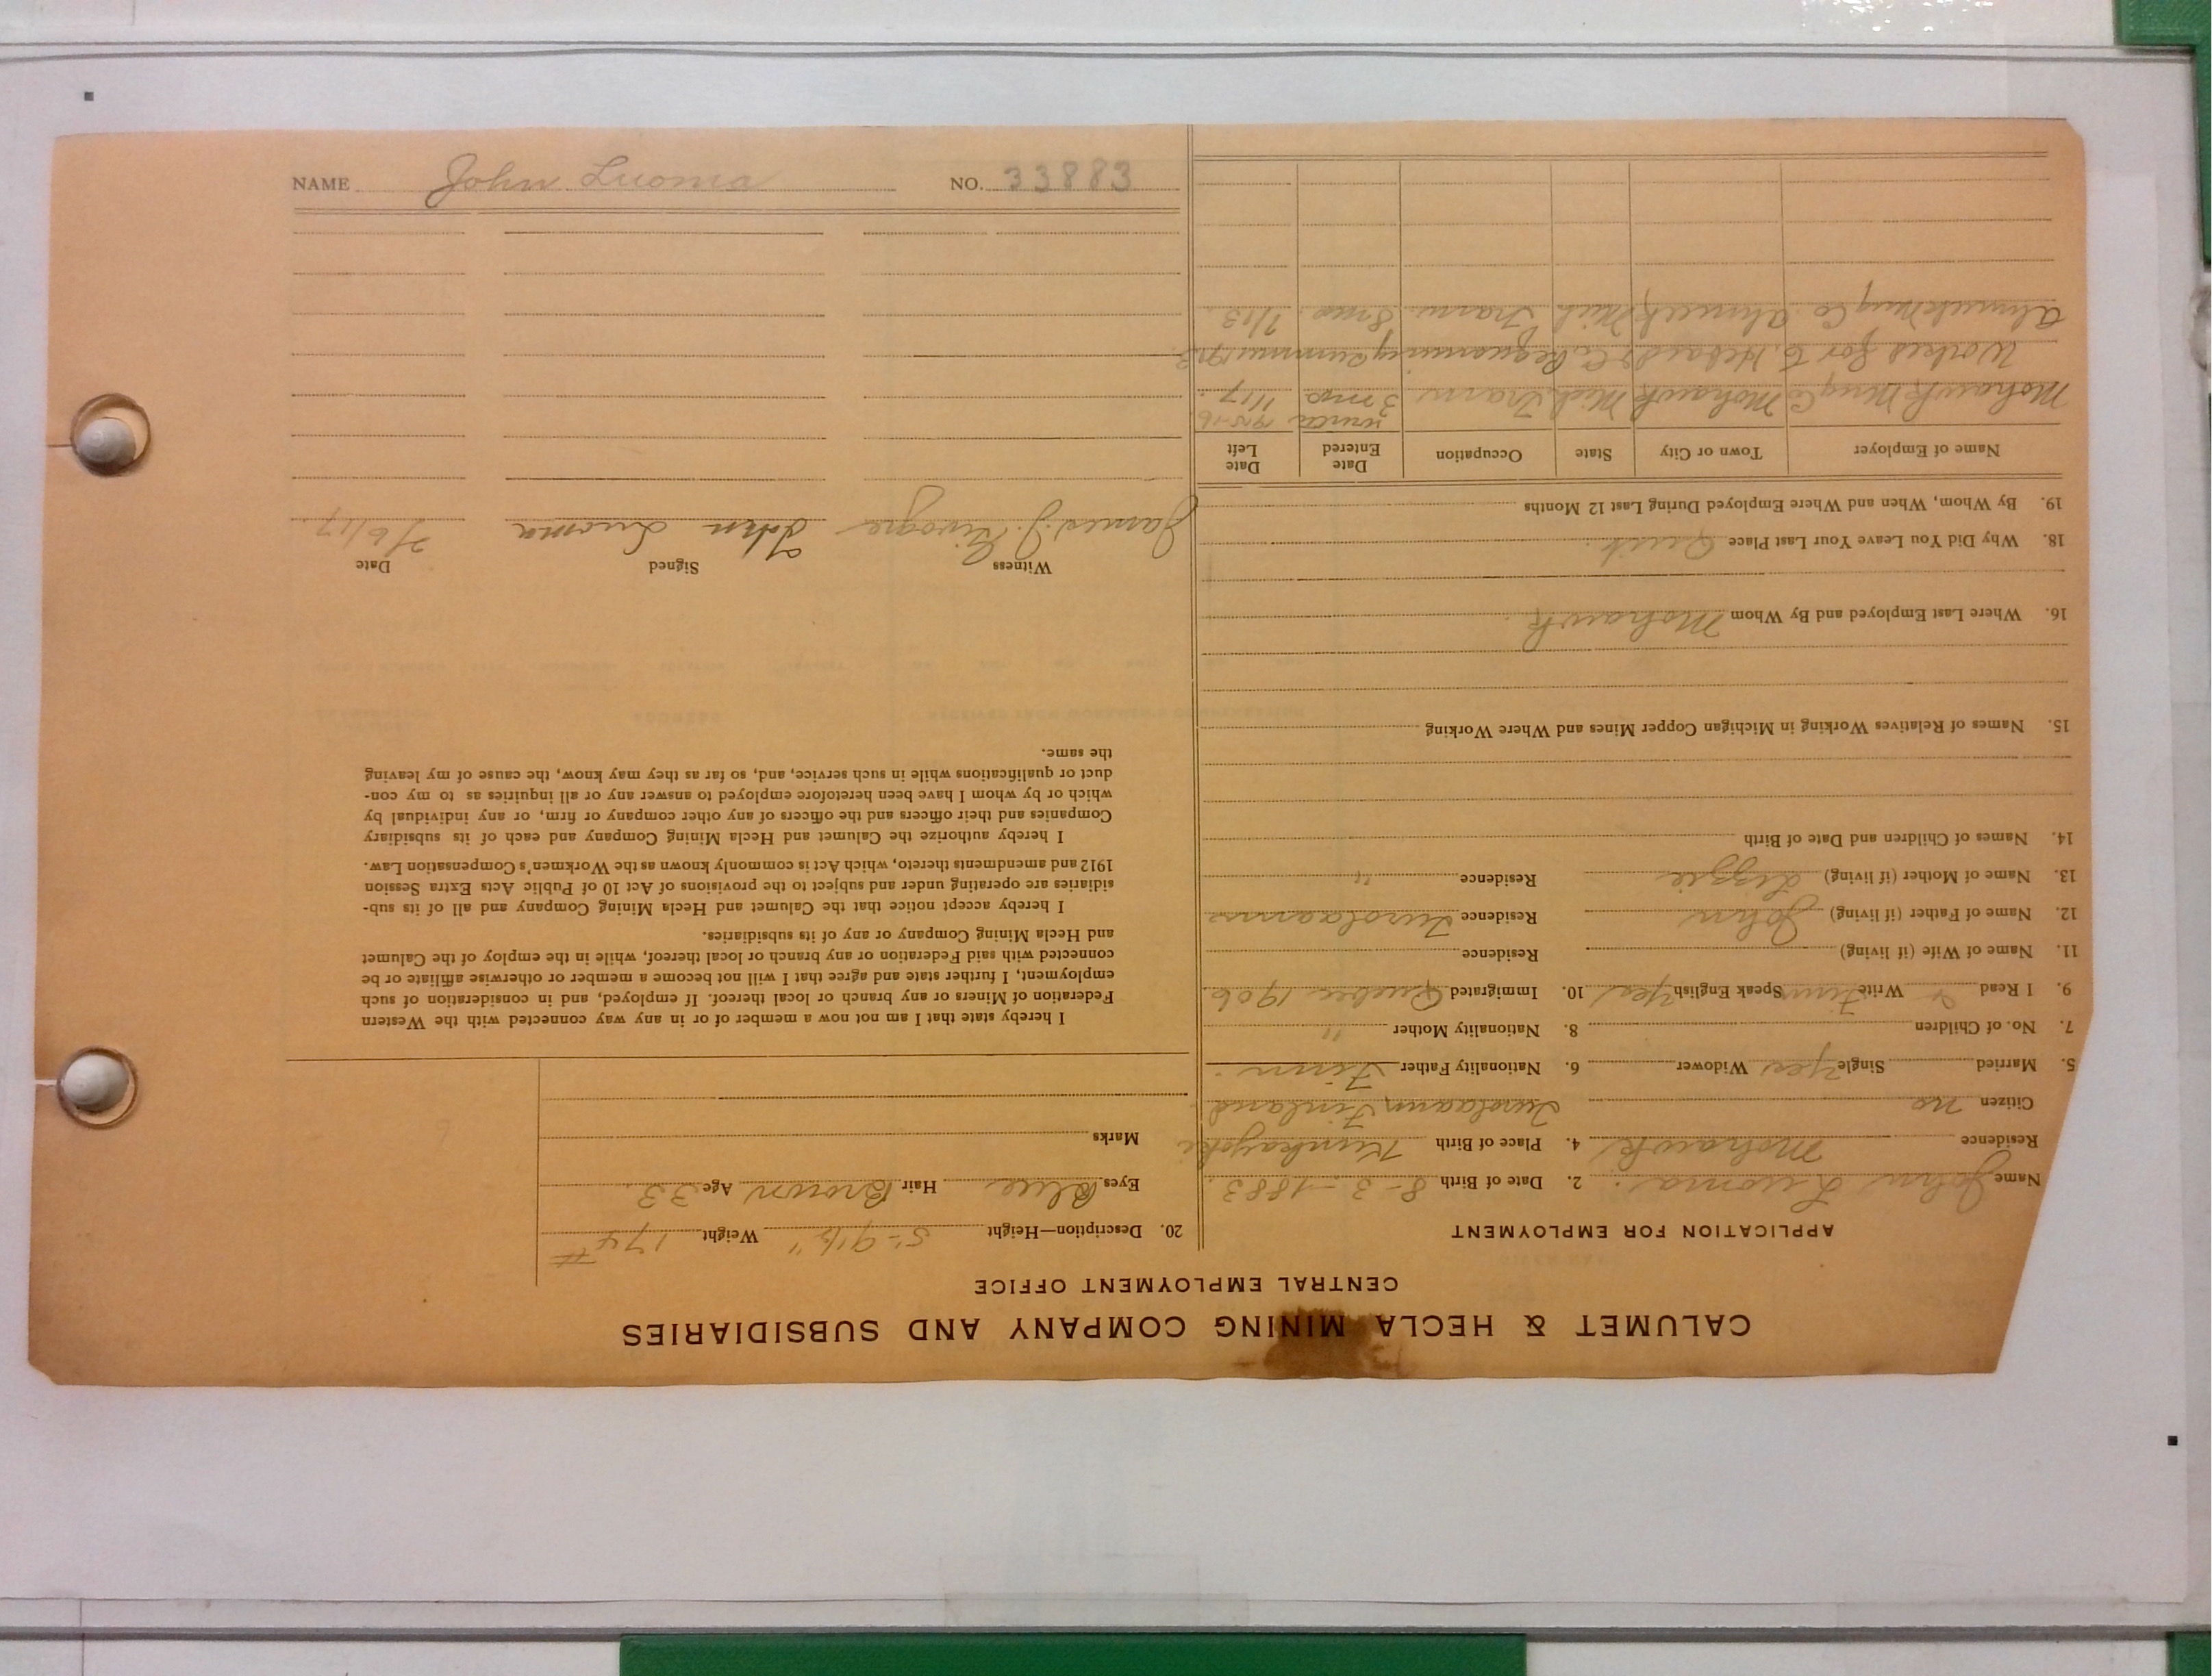 CALUMET & HECLA MINING COMPANY AND SUBSIDIARIES
CENTRAL EMPLOYMENT OFFICE
APPLICATION FOR EMPLOYMENT
Name John Luoma. 2. Date of Birth 8-3-1883.
Residence Mohawk 4. Place of Birth
Citizen no Finland
5. Married Single Yes Widower 6. Nationality Father Finn.
7. No. of Children 8. Nationality Mother "
9. I Read Write Finn Speak English Yes 10. Immigrated Quebec 1906
11. Name of Wife (if living) Residence
12. Name of Father (if living) John Residence
13. Name of Mother (if living) Lizzie Residence "
14. Names of Children and Date of Birth
15. Names of Relatives Working in Michigan Copper Mines and Where Working
16. Where Last Employed and By Whom Mohawk.
18. Why Did You Leave Your Last Place Quit.
19. By Whom, When and Where Employed During Last 12 Months
Name of Employer Town or City State Occupation Date Entered Date Left
winter 1915-16
Mohawk Mng Co Mohawk Mich Tram 3 mos 1/17.
Worked for C. Hebard & Co. Pequaming summer 1913
Ahmeek Mng Co Ahmeek Mich Tram. 8 mos. 7/13.
20. Description—Height 5'-9 1/2" Weight 174 #
Eyes Blue Hair Brown Age 33.
Marks
I hereby state that I am not now a member of or in any way connected with the Western
Federation of Miners or any branch or local thereof. If employed, and in consideration of such
employment, I further state and agree that I will not become a member or otherwise affiliate or be
connected with said Federation or any branch or local thereof, while in the employ of the Calumet
and Hecla Mining Company or any of its subsidiaries.
I hereby accept notice that the Calumet and Hecla Mining Company and all of its sub-
sidiaries are operating under and subject to the provisions of Act 10 of Public Acts Extra Session
1912 and amendments thereto, which Act is commonly known as the Workmen's Compensation Law.
I hereby authorize the Calumet and Hecla Mining Company and each of its subsidiary
Companies and their officers and the officers of any other company or firm, or any individual by
which or by whom I have been heretofore employed to answer any or all inquiries as to my con-
duct or qualifications while in such service, and, so far as they may know, the cause of my leaving
the same.
Witness Signed Date
James J. John Luoma 2/6/17.
NAME John Luoma NO. 33883